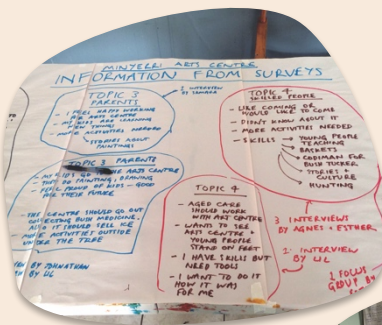 MINYERRI ARTS CENTRE
INFORMATION FROM SURVEYS
TOPIC 3
PARENTS
- I FEEL HAPPY WORKING
FOR ARTS CENTRE
- MY KIDS ARE LEARNING
NEW THINGS
- MORE ACTIVITIES NEEDED
- STORIES ABOUT
PAINTINGS
2 INTERVIEW
BY
TOPIC 3 PARENTS
- MY KIDS GO TO THE ARTS CENTRE
THEY DO PAINTING, DANCING
- FEEL PROUD OF KIDS - GOOD
FOR THEIR FUTURE
- THE CENTRE SHOULD GO OUT
COLLECTING BUSH MEDICINE.
ALSO IT SHOULD SELL ICE
- MORE ACTIVITIES OUTSIDE
UNDER THE TREE
BY JOHNATHAN
BY LIL
TOPIC 4
SKILLED PEOPLE
- LIKE COMING OR
WOULD LIKE TO COME
- DIDN'T KNOW ABOUT IT
- MORE ACTIVITIES NEEDED
- SKILLS → YOUNG PEOPLE
TEACHING
BASKETS
FOR
BUSH TUCKER
STORIES &
CULTURE
HUNTING
TOPIC 4
- AGED CARE
SHOULD WORK
WITH ART CENTRE
- WANTS TO SEE
ARTS CENTRE &
YOUNG PEOPLE
STAND ON FEET
- I HAVE SKILLS BUT
NEED TOOLS
- I WANT TO DO IT
HOW IT WAS
FOR ME
3 INTERVIEWS
BY AGNES + ESTHER
1 INTERVIEW
BY LIL
2 FOCUS
GROUP BY